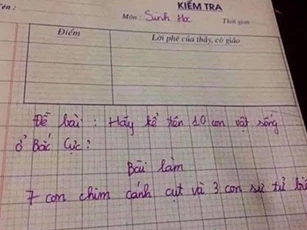 ên :
KIỂM TRA
Môn : Sinh Học
Thời gian
Điểm
Lời phê của thầy, cô giáo
Đề bài : Hãy kể tên 10 con vật sống
ở Bắc Cực ?
Bài làm
7 con chim cánh cụt và 3 con sư tử biể